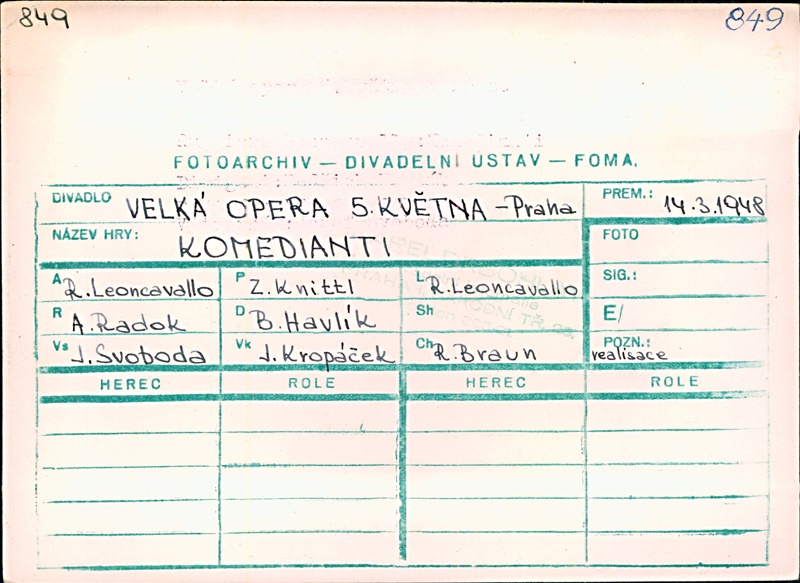 849 849
FOTOARCHIV — DIVADELNÍ ÚSTAV — FOMA.
DIVADLO VELKÁ OPERA 5. KVĚTNA - Praha PREM.: 14.3.1948
NÁZEV HRY: KOMEDIANTI FOTO
A R. Leoncavallo P Z. Knittl L R. Leoncavallo SIG.:
R A. Radok D B. Havlík Sh E/
Vs J. Svoboda Vk J. Kropáček Ch R. Braun POZN.: realisace
HEREC ROLE HEREC ROLE